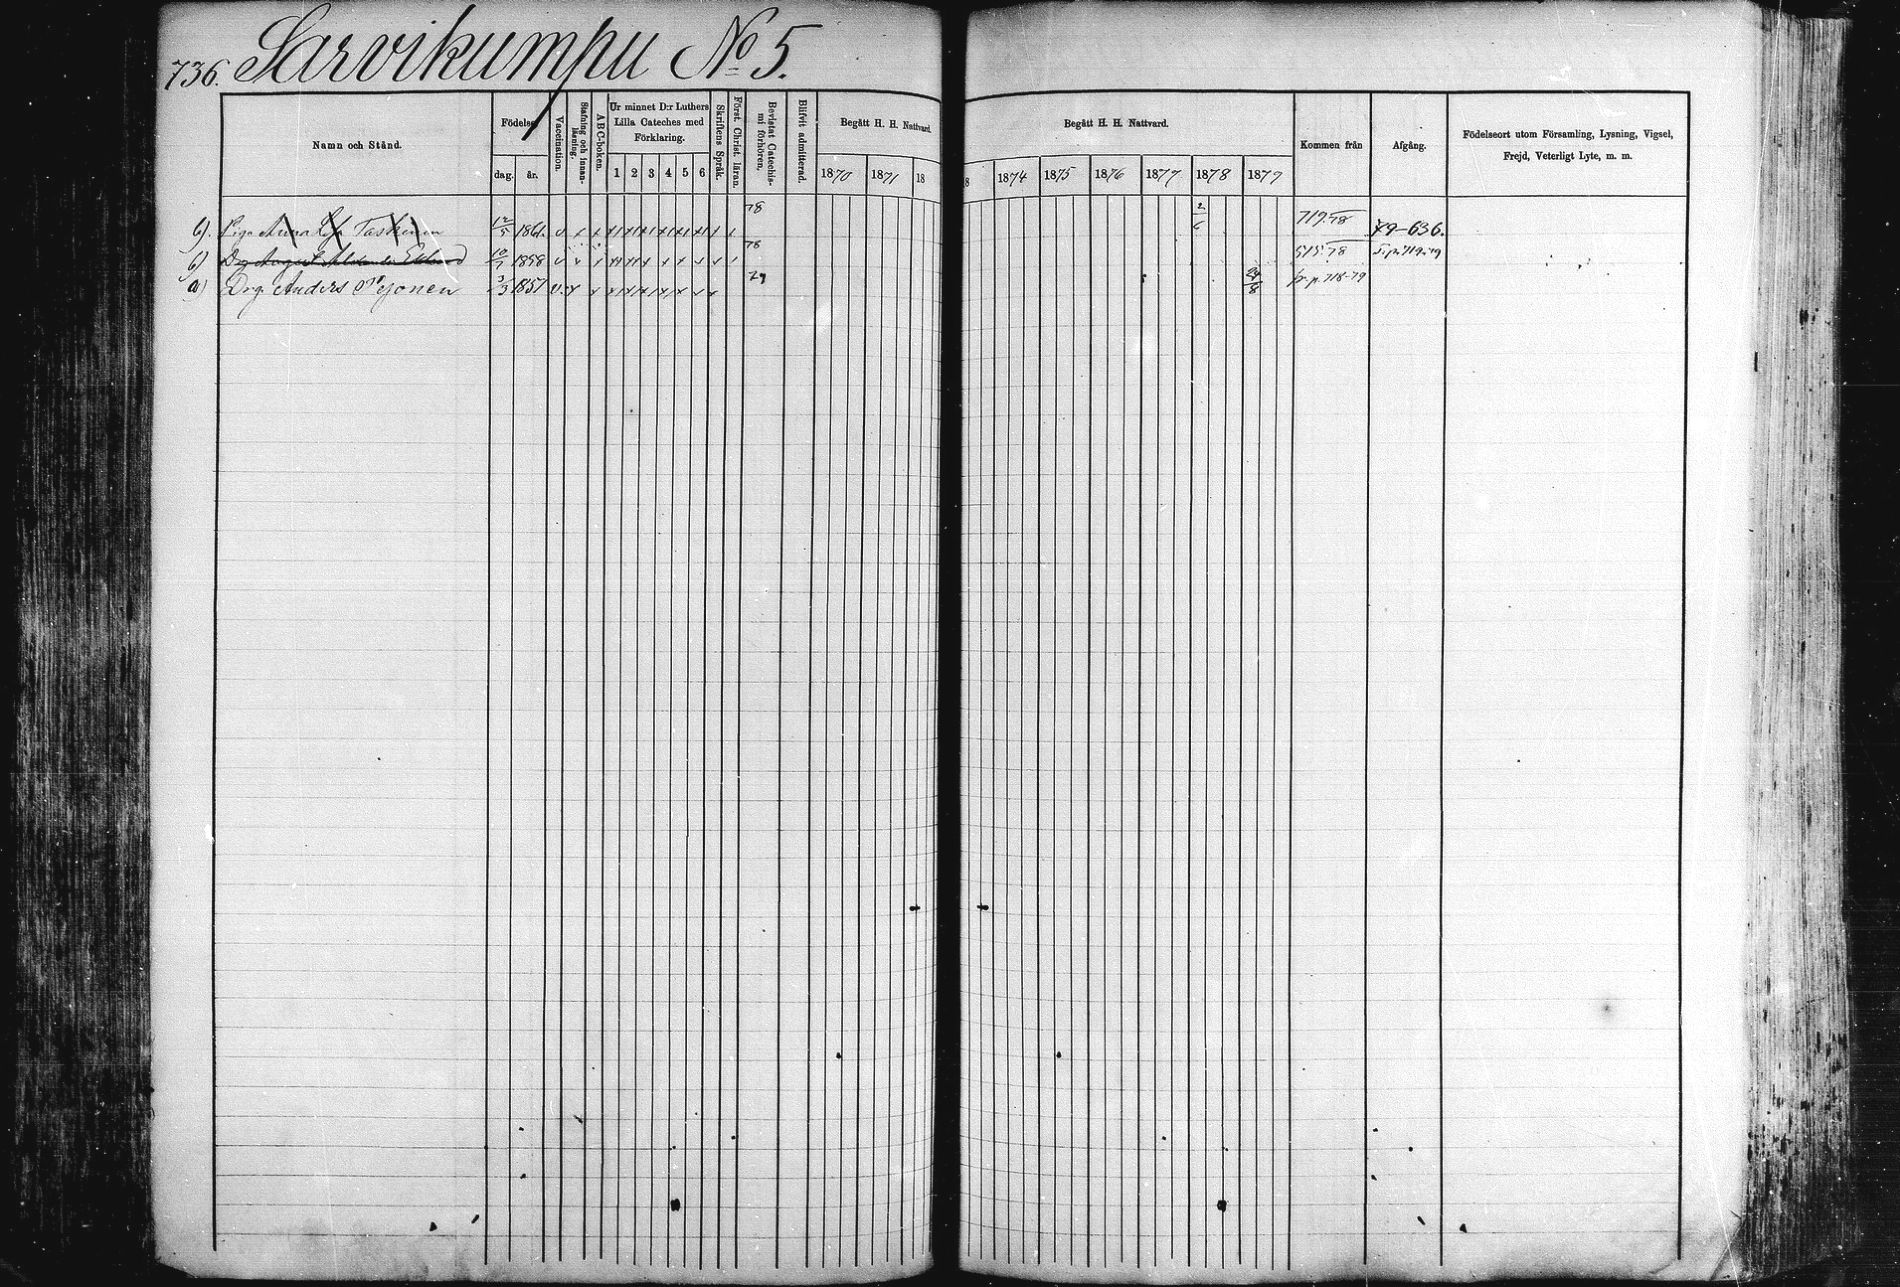 736. Sarvikumpu No 5.
Namn och Stånd.
Födelse
dag. år.
Vaccination.
Stafning och innanläsning.
ABC-boken.
Ur minnet D:r Luthers
Lilla Cateches med
Förklaring.
1 2 3 4 5 6
Skriftens Språk.
Först. Christ. läran.
Bevistat Catechismi förhören.
Blifvit admitterad.
Begått H. H. Nattvard.
1870 1871 18
Begått H. H. Nattvard.
8 1874 1875 1876 1877 1878 1879
Kommen från
Afgång.
Födelseort utom Församling, Lysning, Vigsel,
Frejd, Veterligt Lyte, m. m.
b). Piga Anna Taskinen 12/5 1861. 78 2/6 719.78 79-636.
b) Drg August 10/7 1858 78 515.78
a) Drg Anders 3/3 1857 v. 79 fr. p. 718-79